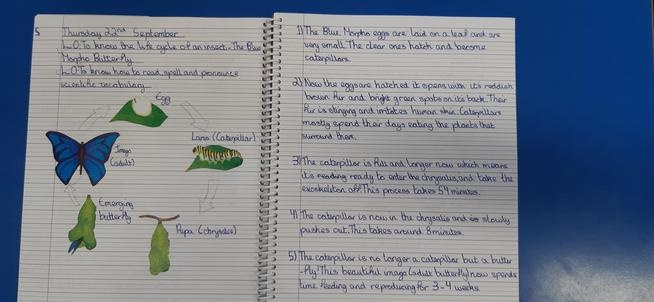 5
Thursday 22nd September
L.O:To know the life cycle of an insect-The Blue
Morpho Butterfly
L.O:To know how to read, spell and pronounce
scientific vocabulary
Egg
Larva (Caterpillar)
Pupa (chrysalis)
Emerging
butterfly
Imago
(adult)
1) The Blue Morpho eggs are laid on a leaf and are
very small. The clear ones hatch and become
caterpillars.
2) Now the eggs are hatched it opens with it's reddish
brown fur and bright green spots on its back. Their
fur is stinging and irritates human skin. Caterpillars
mostly spend their days eating the plants that
surround them.
3) The caterpillar is full and longer now which means
it's ready to enter the chrysalis, and take the
exoskeleton off. This process takes 54 minutes.
4) The caterpillar is now in the chrysalis and is slowly
pushes out. This takes around 8 minutes.
5) The caterpillar is no longer a caterpillar but a butter
-fly! This beautiful imago (adult butterfly) now spends
time feeding and reproducing for 3-4 weeks.